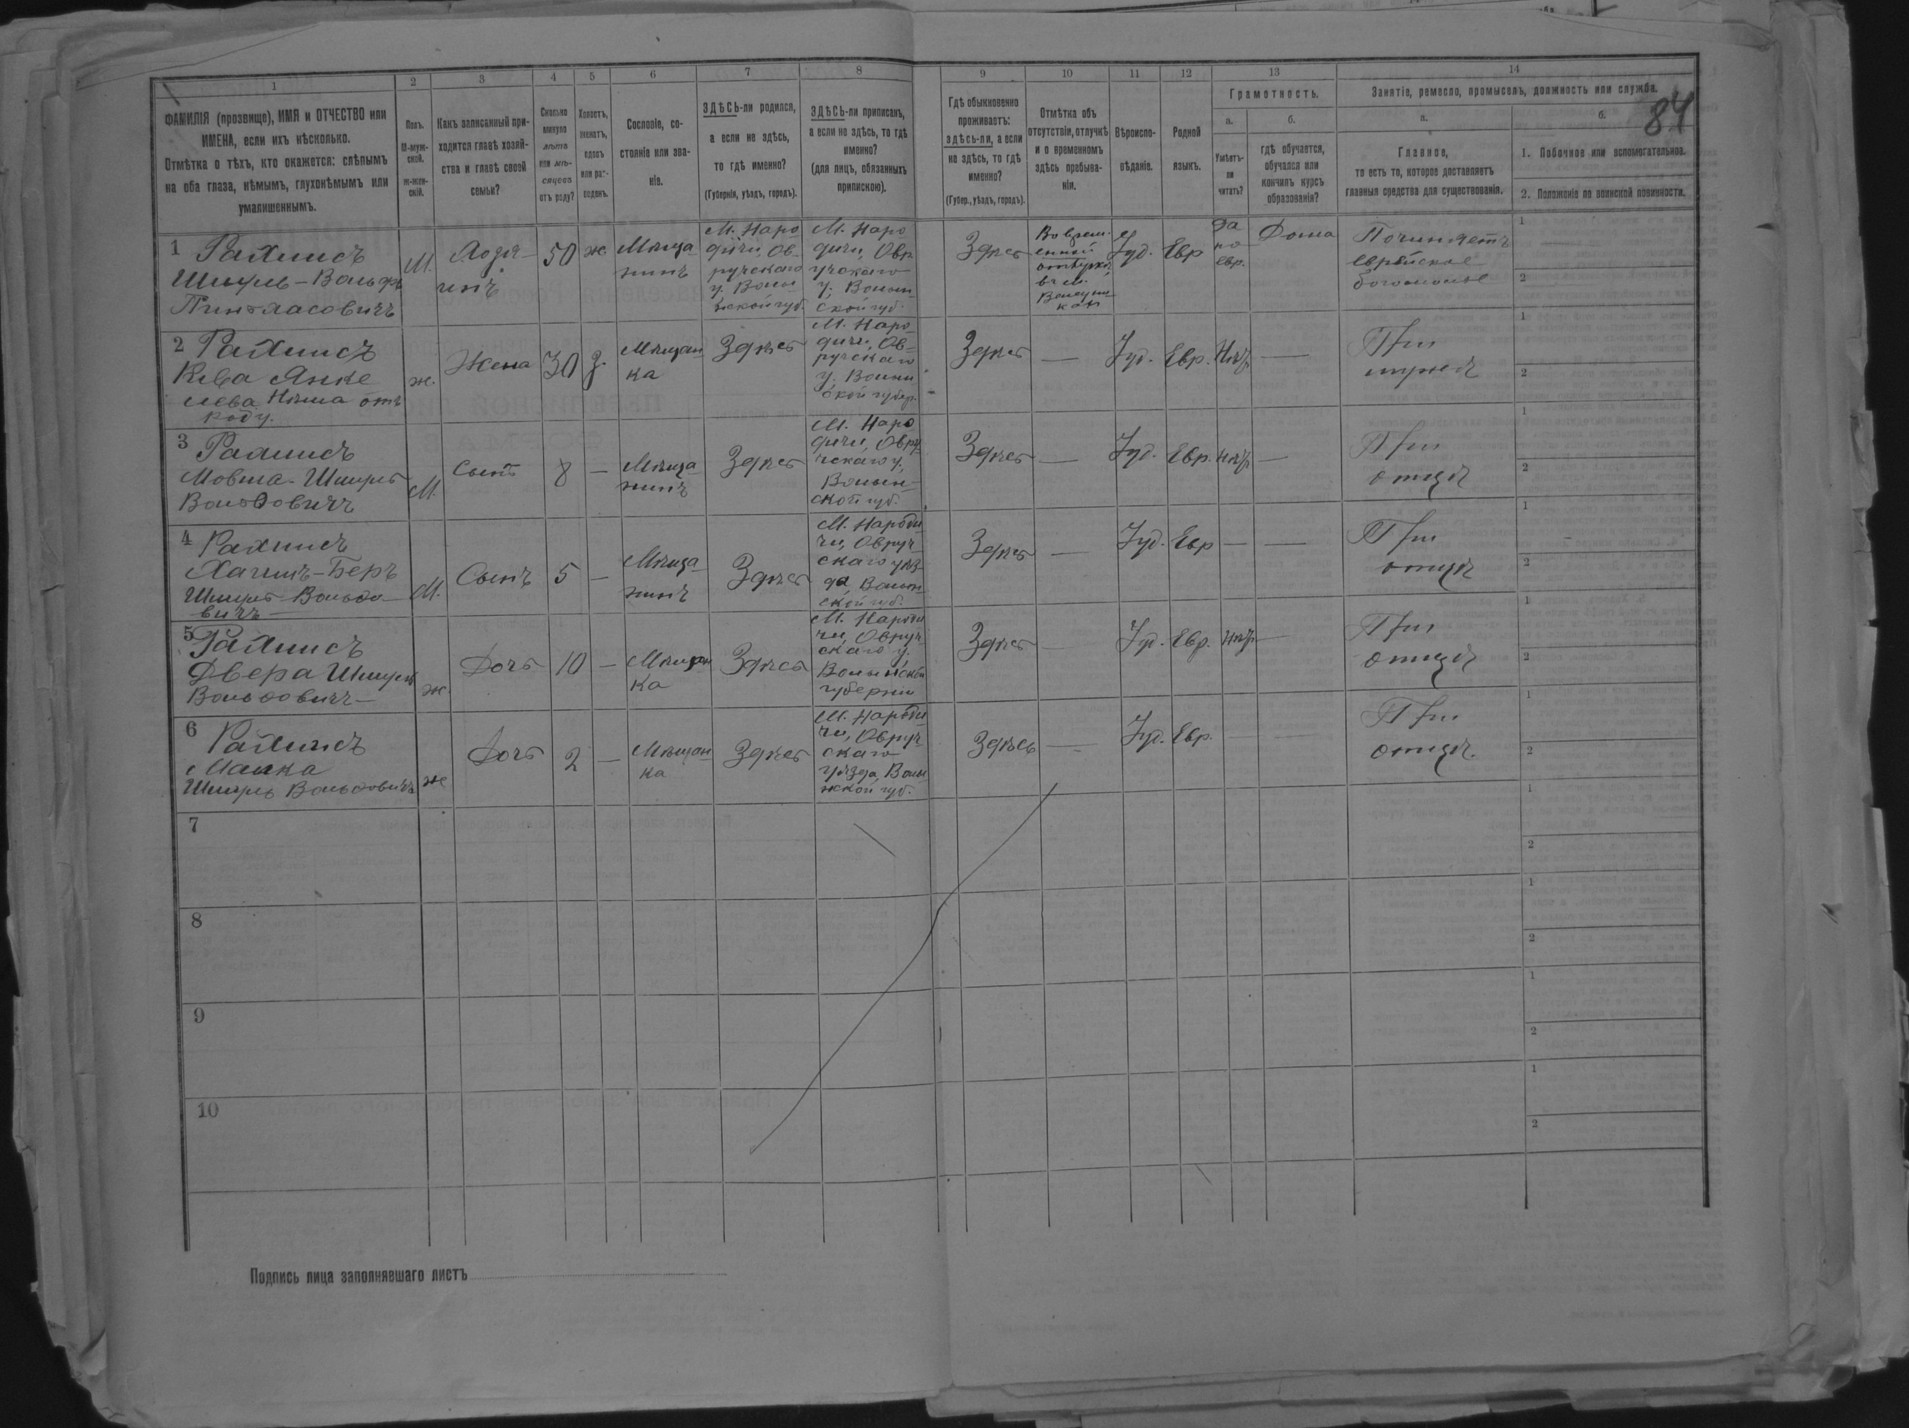 84
1 2 3 4 5 6 7 8 9 10 11 12 13 14
ФАМИЛІЯ (прозвище), ИМЯ и ОТЧЕСТВО или
ИМЕНА, если ихъ нѣсколько.
Отмѣтка о тѣхъ, кто окажется: слѣпымъ
на оба глаза, нѣмымъ, глухонѣмымъ или
умалишеннымъ.
Полъ.
М-муж-
ской.
ж-жен-
скій.
Какъ записанный при-
ходится главѣ хозяй-
ства и главѣ своей
семьи?
Сколько
минуло
лѣтъ
или мѣ-
сяцевъ
отъ роду?
Холостъ,
женатъ,
вдовъ
или раз-
веденъ.
Сословіе, со-
стояніе или зва-
ніе.
ЗДѢСЬ-ли родился,
а если не здѣсь,
то гдѣ именно?
(Губернія, уѣздъ, городъ).
ЗДѢСЬ-ли приписанъ,
а если не здѣсь, то гдѣ
именно?
(для лицъ, обязанныхъ
припискою).
Гдѣ обыкновенно
проживаетъ:
здѣсь-ли, а если
не здѣсь, то гдѣ
именно?
(Губер., уѣздъ, городъ).
Отмѣтка объ
отсутствіи, отлучкѣ
и о временномъ
здѣсь пребыва-
ніи.
Вѣроиспо-
вѣданіе.
Родной
языкъ.
Грамотность.
а.
Умѣетъ-
ли
читать?
б.
гдѣ обучается,
обучался или
кончилъ курсъ
образованія?
Занятіе, ремесло, промыселъ, должность или служба.
а.
Главное,
то есть то, которое доставляетъ
главныя средства для существованія.
б.
1. Побочное или вспомогательное.
2. Положеніе по воинской повинности.
1 Рахлисъ
Шмуль-Вольфъ
М.
Хозя-
инъ
50
ж
Мѣща-
нинъ
М. Наро-
дичи, Ов-
ручскаго
у. Волы-
нской губ.
М. Наро
дичи, Овр
учскаго
у. Волын-
ской губ.
Здѣсь
Во врем.
енной
отлучкѣ
въ м.
Іуд.
Евр
Да
по
евр.
Дома
Починяетъ
еврейское
богомолье
1
2
2 Рахлисъ
Кева Янке
лева Нѣма отъ
роду.
ж.
Жена
30
З.
Мѣщан
ка
Здѣсь
М. Наро
дичи, Ов-
ручскаго
у. Волын
ской губер.
Здѣсь
—
Іуд.
Евр.
Нѣтъ
—
При
мужѣ
1
2
3 Рахлисъ
Мовша-Шмуль
Вольфовичъ
М.
Сынъ
8
—
Мѣща
нинъ
Здѣсь
М. Наро
дичи, Овру
чскаго у.
Волын-
ской губ.
Здѣсь
—
Іуд.
Евр.
нѣтъ
—
При
отцѣ
1
2
4 Рахлисъ
Хаимъ-Беръ
Шмуль-Вольфо
вичъ
М.
Сынъ
5
—
Мѣща
нинъ
Здѣсь
М. Народи
чи, Овруч
скаго уѣз
да, Волын
ской губ.
Здѣсь
—
Іуд.
Евр
—
—
При
отцѣ
1
2
5 Рахлисъ
Двера Шмуль
Вольфовичъ
ж
Дочь
10
—
Мѣщан
ка
Здѣсь
М. Народи
чи, Овруч
скаго у.
Волынской
губерніи
Здѣсь
—
Іуд.
Евр.
нѣтъ
—
При
отцѣ
1
2
6 Рахлисъ
Малка
Шмуль Вольфовичъ
ж
Дочь
2
—
Мѣщан
ка
Здѣсь
М. Народи
чи, Овруч
скаго
уѣзда, Волы
нской губ.
Здѣсь
—
Іуд.
Евр.
—
—
При
отцѣ.
1
2
7
1
2
8
1
2
9
1
2
10
1
2
Подпись лица заполнявшаго листъ